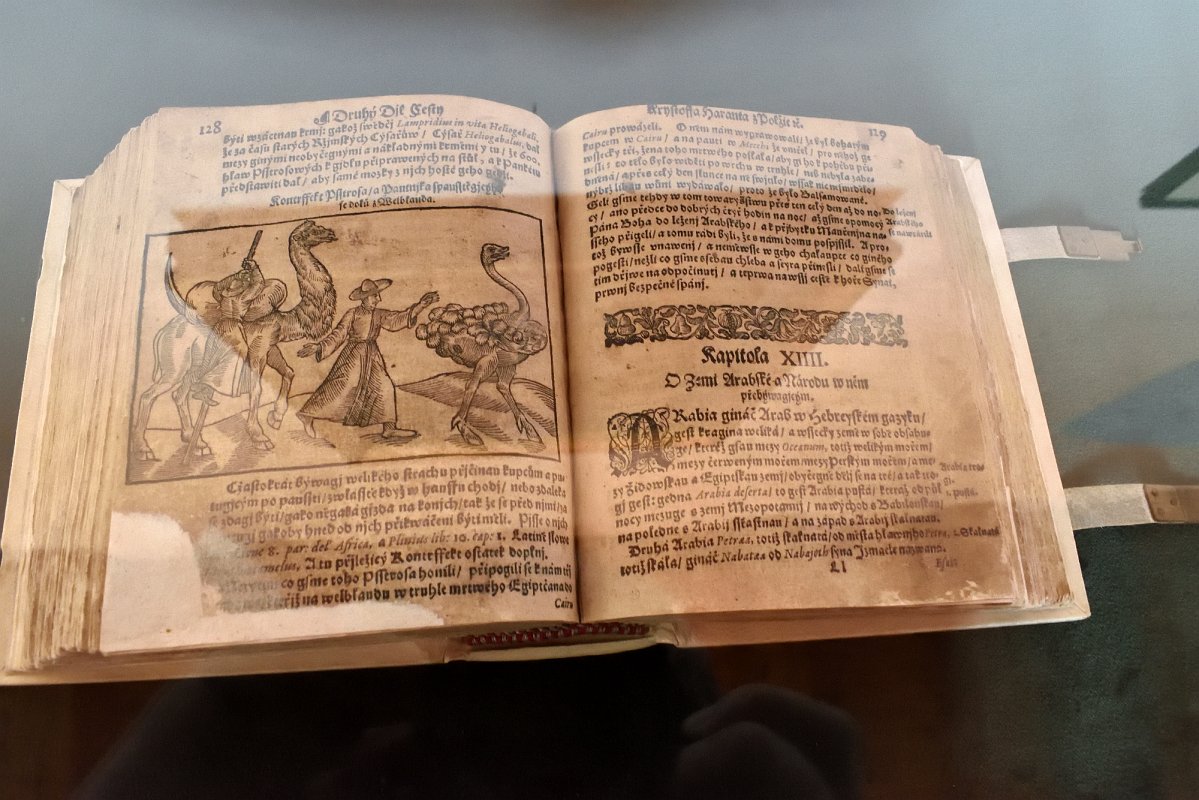 128
Druhý Díl Cesty
býti wzáctnau krmj: gakož swědčj Lampridius in vita Heliogabali,
že za času starých Ržjmských Cýsařůw / Cýsař Heliogabalus, dal
mezy ginými neobyčegnými a nákladnými krměmi y tu / že 600.
hlaw Pštrosowých k gidlu připrawených na stůl, a k Panketu
předstawiti dal / aby samé mozky z nich hosté geho gedli.
Konterffekt Pštrosa / a Pauntnjka spauštěgjcýho
se dolů z Welblauda.
Cžastokrát býwagj welikého strachu přjčinau kupcům a pu-
tugjcým po paussti / zwlásstě když w hauffu chodj / nebo zdaleka
se zdagj býti / gako něgaká gjzda na konjch / tak že se před nimi
gakoby hned od nich přikwáčeni býti měli. Pjsse o nich
8. par: del Africa, a Plinius lib: 10. cap: 1. Latině slowe
A tu přjležjcý Konterffekt ostatek doplnj.
co gsme toho Psstrosa honili / připogili se k nám tři
na welblaudu w truhle mrtwého Egiptčana do
Cairu
Krysstoffa Haranta z Polžic ꝛc.
119
Cairu prowázeli. O něm nám wyprawowali / že byl bohatým
kupcem w Cairu / a na pauti w Meche že umřel / pro něhož ge
wssecky tři, žena toho mrtwého poslala / aby gi ho k pohřbu při-
nesli: to tělo bylo widěti po wrchu w truhle / nic nebyla zabe-
dněná / a přes celý den slunce na ně swjtilo / wssak nic nesmrdělo /
nýbrž libau wůni wydáwalo / proto že bylo Balsamowané.
Geli gsme tehdy w tom towaryšstwu přes ten celý den až do no-
cy / ano předce do dobrých čtyř hodin na noc / až gsme s pomocý
Pána Boha do ležení Arabského / a k přjbytku Maučenjna na-
sseho přigeli / a tomu rádi byli, že s námi domů pospjssil. A pro-
tož bywsse vnaweni / a neměwsse w geho chalaupce co giného
pogesti / nežli co gsme s sebau chleba a seyra přinesli / dali gsme se
tjm dřjwe na odpočinutj / a teprwa na wssj cestě k hoře Synai,
prwnj bezpečné spánj.
Do ležení
Arabského
se nawrátili
Kapitola XIIII.
O Zemi Arabské a Národu w něm
přebýwagjcým.
ARabia gináč Arab w Hebreyském gazyku /
gest kragina weliká / a wssecky země w sobě obsahu-
ge / kteréž gsau mezy Oceanum, totiž welikým mořem /
mezy čerweným mořem / mezy Perským mořem / a me-
zy Židowskau a Egiptskau zemj / obyčegně dělj se na tré / a tak tro-
gj gest: gedna Arabia deserta / to gest Arabia pustá / kteráž od půl
nocy mezuge s zemj Mezopotamj / na weychod s Babilonskau /
na poledne s Arabij sstiastnau / a na západ s Arabij skalnatau.
Druhá Arabia Petraea, totiž skalnatá / od města hlawnjho Petra,
totiž skála / gináč Nabataea od Nabajoth syna Izmaele nazwaná.
Arabia tro-
1. pustá.
2. Skalnatá
Ll